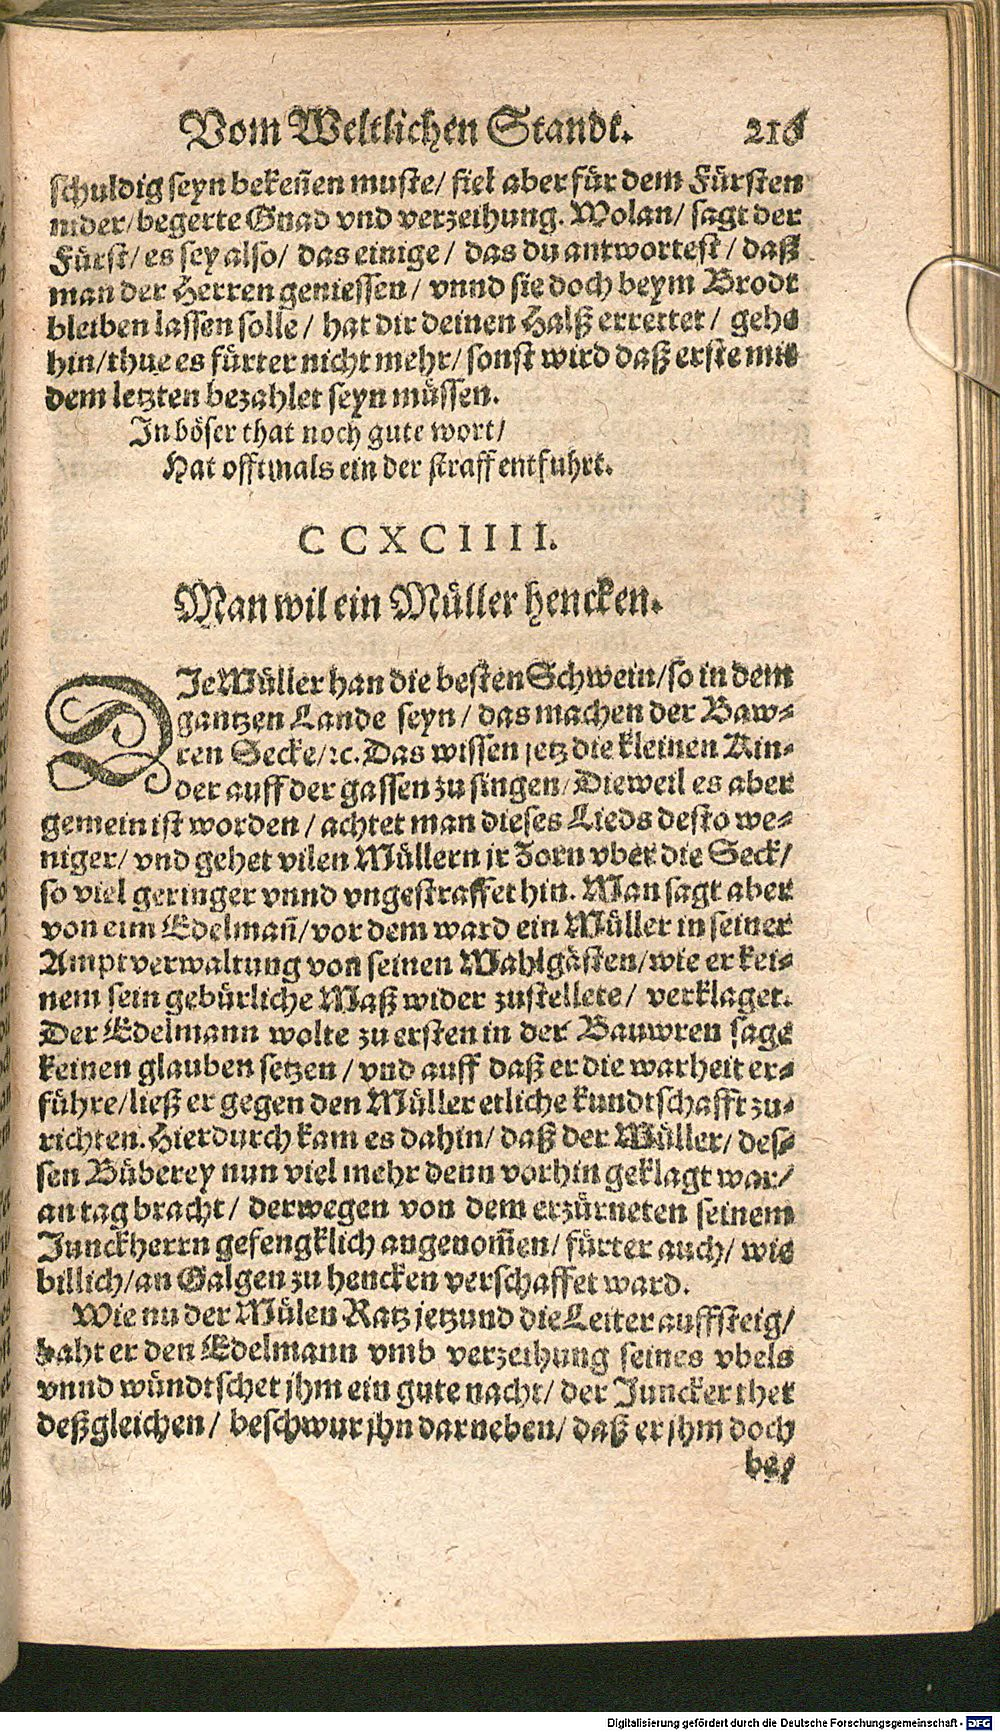 Vom Weltlichen Standt. 216
schuldig seyn bekeñen muste/ fiel aber für dem Fürsten
nider/ begerte Gnad vnd verzeihung. Wolan/ sagt der
Fürst/ es sey also/ das einige/ das du antwortest/ daß
man der Herren geniessen/ vnnd sie doch beym Brodt
bleiben lassen solle/ hat dir deinen Halß errettet/ gehe
hin/ thue es fürter nicht mehr/ sonst wird daß erste mit
dem letzten bezahlet seyn müssen.
In böser that noch gute wort/
Hat offtmals ein der straff entfuhrt.
CCXCIIII.
Man wil ein Müller hencken.
DIe Müller han die besten Schwein/ so in dem
gantzen Lande seyn/ das machen der Baw⸗
ren Secke/ ꝛc. Das wissen jetz die kleinen Kin⸗
der auff der gassen zu singen/ Dieweil es aber
gemein ist worden/ achtet man dieses Lieds desto we⸗
niger/ vnd gehet vilen Müllern jr Zorn vber die Seck/
so viel geringer vnnd vngestraffet hin. Man sagt aber
von eim Edelmañ/ vor dem ward ein Müller in seiner
Amptverwaltung von seinen Mahlgästen/ wie er kei⸗
nem sein gebürliche Maß wider zustellete/ verklaget.
Der Edelmann wolte zu ersten in der Bauwren sage
keinen glauben setzen/ vnd auff daß er die warheit er⸗
führe/ ließ er gegen den Müller etliche kundtschafft zu⸗
richten. Hierdurch kam es dahin/ daß der Müller/ des⸗
sen Büberey nun viel mehr denn vorhin geklagt war/
an tag bracht/ derwegen von dem erzürneten seinem
Junckherrn gefengklich angenom̃en/ fürter auch/ wie
billich/ an Galgen zu hencken verschaffet ward.
Wie nu der Mülen Ratz jetzund die Leiter auffsteig/
baht er den Edelmann vmb verzeihung seines vbels
vnnd wündtschet jhm ein gute nacht/ der Juncker thet
deßgleichen/ beschwur jhn darneben/ daß er jhm doch
be⸗
Digitalisierung gefördert durch die Deutsche Forschungsgemeinschaft - DFG